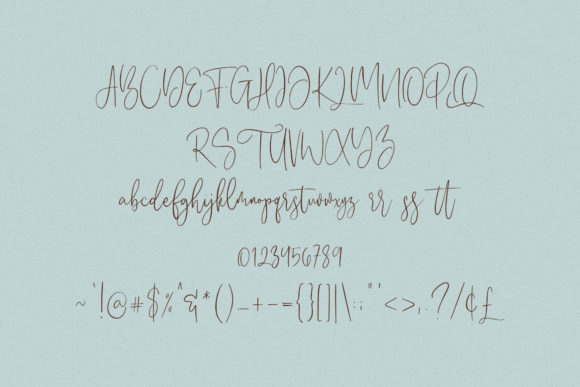 ABCDEFGHIJKLMNOPQ
RSTUVWXYZ
abcdefghyjklmnopqrstuvwxyz rr ss tt
0123456789
~`!@#$%^&*()_+-={}[]|\:;"'<>,.?/¢£